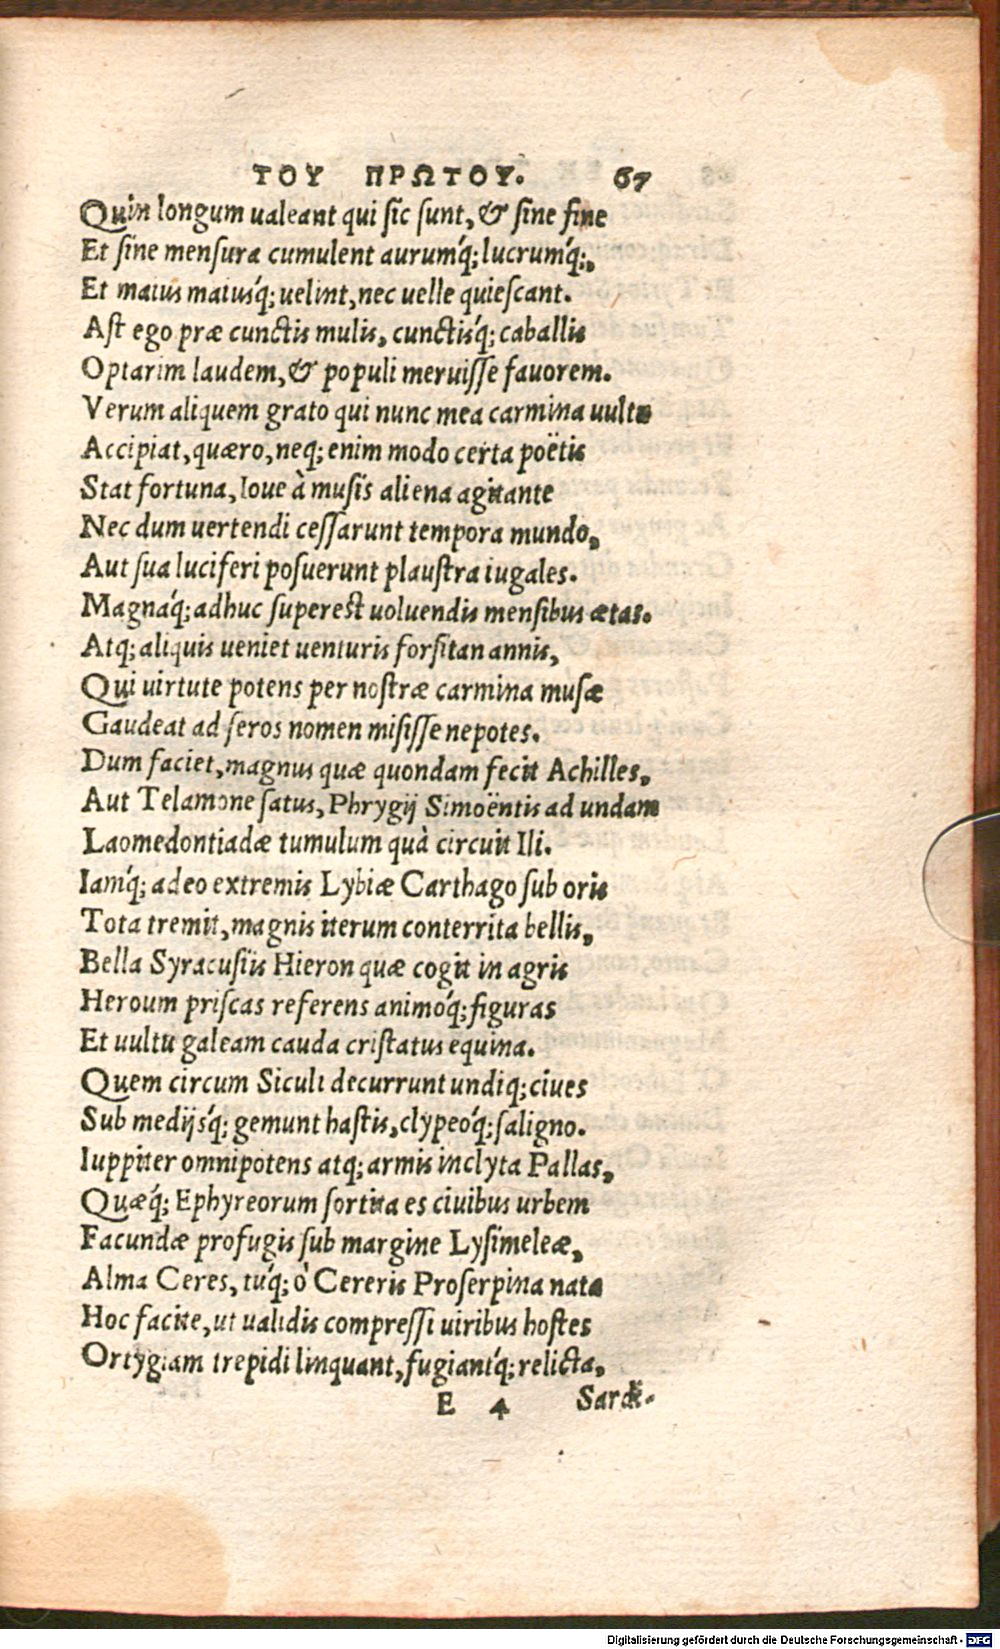 ΤΟΥ ΠΡΩΤΟΥ. 67
Quin longum ualeant qui sic sunt, & sine fine
Et sine mensura cumulent aurumq́; lucrumq́;,
Et maius maiusq́; uelint, nec uelle quiescant.
Ast ego præ cunctis mulis, cunctisq́; caballis
Optarim laudem, & populi meruisse fauorem.
Verum aliquem grato qui nunc mea carmina uultu
Accipiat, quæro, neq; enim modo certa poëtis
Stat fortuna, Ioue à musis aliena agitante
Nec dum uertendi cessarunt tempora mundo,
Aut sua luciferi posuerunt plaustra iugales.
Magnaq́; adhuc superest uoluendis mensibus ætas.
Atq; aliquis ueniet uenturis forsitan annis,
Qui uirtute potens per nostræ carmina musæ
Gaudeat ad seros nomen misisse nepotes.
Dum faciet, magnus quæ quondam fecit Achilles,
Aut Telamone satus, Phrygij Simoëntis ad undam
Laomedontiadæ tumulum quà circuit Ili.
Iamq́; adeo extremis Lybiæ Carthago sub oris
Tota tremit, magnis iterum conterrita bellis,
Bella Syracusiis Hieron quæ cogit in agris
Heroum priscas referens animoq́; figuras
Et uultu galeam cauda cristatus equina.
Quem circum Siculi decurrunt undiq; ciues
Sub medijsq́; gemunt hastis, clypeoq́; saligno.
Iuppiter omnipotens atq; armis inclyta Pallas,
Quæq́; Ephyreorum sortita es ciuibus urbem
Facundæ profugis sub margine Lysimeleæ,
Alma Ceres, tuq́; ò Cereris Proserpina nata
Hoc facite, ut ualidis compressi uiribus hostes
Ortygiam trepidi linquant, fugiantq́; relicta,
E 4 Sardi-
Digitalisierung gefördert durch die Deutsche Forschungsgemeinschaft - DFG